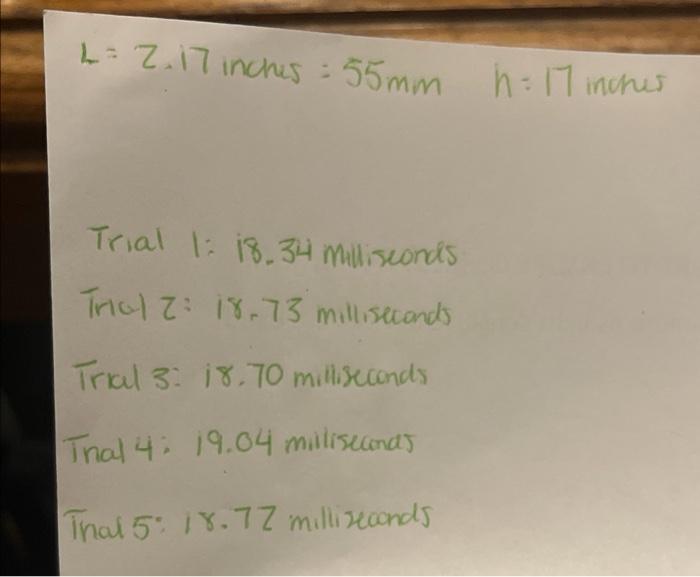 L = 2.17 inches = 55mm h = 17 inches
Trial 1: 18.34 Milliseconds
Trial 2: 18.73 milliseconds
Trial 3: 18.70 milliseconds
Trial 4: 19.04 milliseconds
Trial 5: 18.72 milliseconds